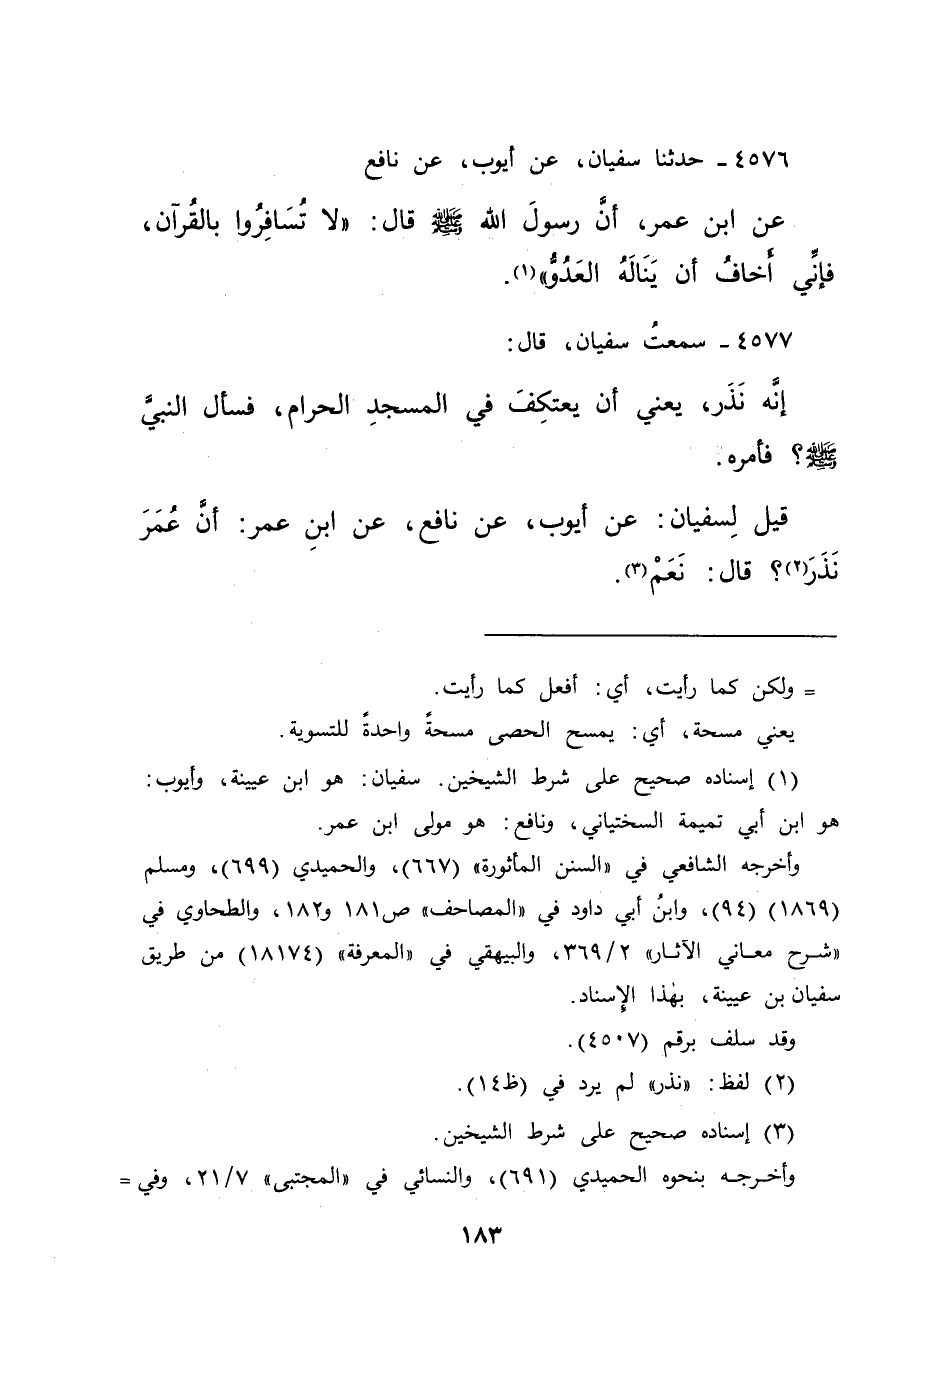 ٤٥٧٦ ـ حدثنا سفيان، عن أيوب، عن نافع
عن ابن عمر، أنَّ رسولَ الله ﷺ قال: «لا تُسَافِرُوا بالقُرآن،
فإنِّي أَخافُ أن يَنَالَهُ العَدُوُّ»(١).
٤٥٧٧ ـ سمعتُ سفيان، قال:
إنَّه نَذَر، يعني أن يعتكِفَ في المسجدِ الحرام، فسأل النبيَّ
ﷺ؟ فأمره.
قيل لِسفيان: عن أيوب، عن نافع، عن ابنِ عمر: أنَّ عُمَرَ
نَذَرَ(٢)؟ قال: نَعَمْ(٣).
= ولكن كما رأيت، أي: أفعل كما رأيت.
يعني مسحة، أي: يمسح الحصى مسحةً واحدةً للتسوية.
(١) إسناده صحيح على شرط الشيخين. سفيان: هو ابن عيينة، وأيوب:
هو ابن أبي تميمة السختياني، ونافع: هو مولى ابن عمر.
وأخرجه الشافعي في «السنن المأثورة» (٦٦٧)، والحميدي (٦٩٩)، ومسلم
(١٨٦٩) (٩٤)، وابنُ أبي داود في «المصاحف» ص١٨١ و١٨٢، والطحاوي في
«شرح معاني الآثار» ٣٦٩/٢، والبيهقي في «المعرفة» (١٨١٧٤) من طريق
سفيان بن عيينة، بهٰذا الإِسناد.
وقد سلف برقم (٤٥٠٧).
(٢) لفظ: «نذر» لم يرد في (ظ١٤).
(٣) إسناده صحيح على شرط الشيخين.
وأخرجه بنحوه الحميدي (٦٩١)، والنسائي في «المجتبى» ٢١/٧، وفي =
١٨٣